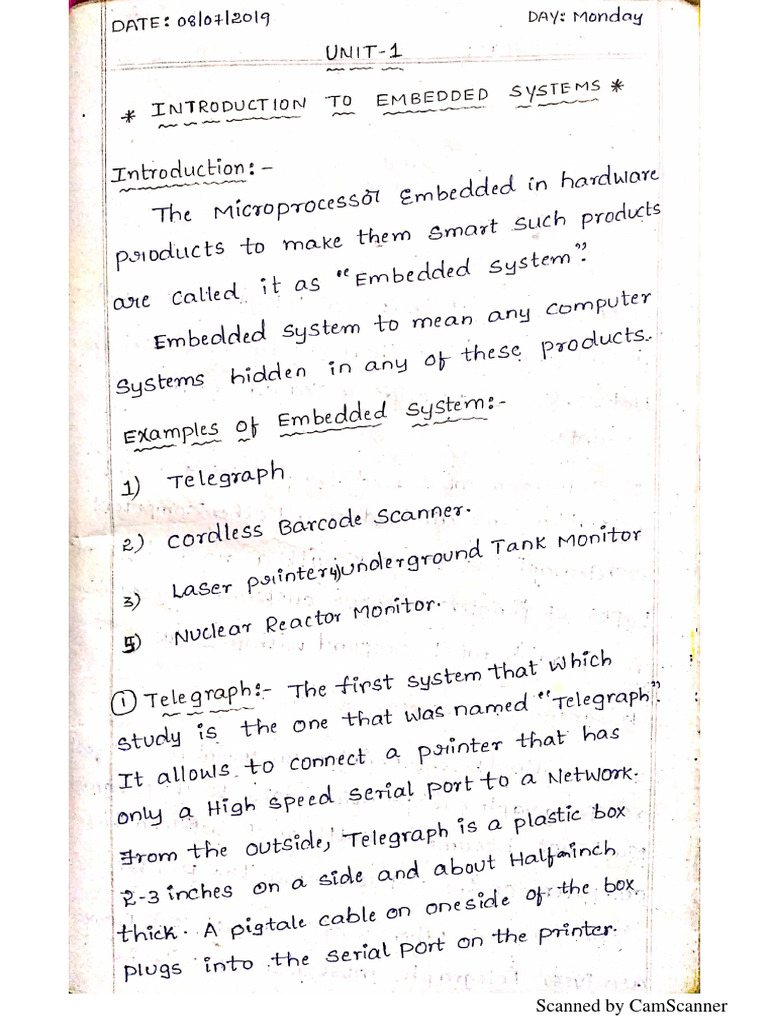 DATE: 08/07/2019 DAY: Monday
UNIT-1
* INTRODUCTION TO EMBEDDED SYSTEMS *
Introduction:-
The Microprocessor Embedded in hardware
products to make them smart such products
are called it as "Embedded System".
Embedded System to mean any computer
Systems hidden in any of these products.
Examples of Embedded System:-
1) Telegraph
2) Cordless Barcode Scanner.
3) Laser printer 4) Underground Tank Monitor
5) Nuclear Reactor Monitor.
① Telegraph:- The first system that which
study is the one that was named "Telegraph".
It allows to connect a printer that has
only a High speed serial port to a Network.
From the outside, Telegraph is a plastic box
2-3 inches on a side and about Half-inch
thick. A pigtale cable on oneside of the box
plugs into the serial port on the printer.
Scanned by CamScanner